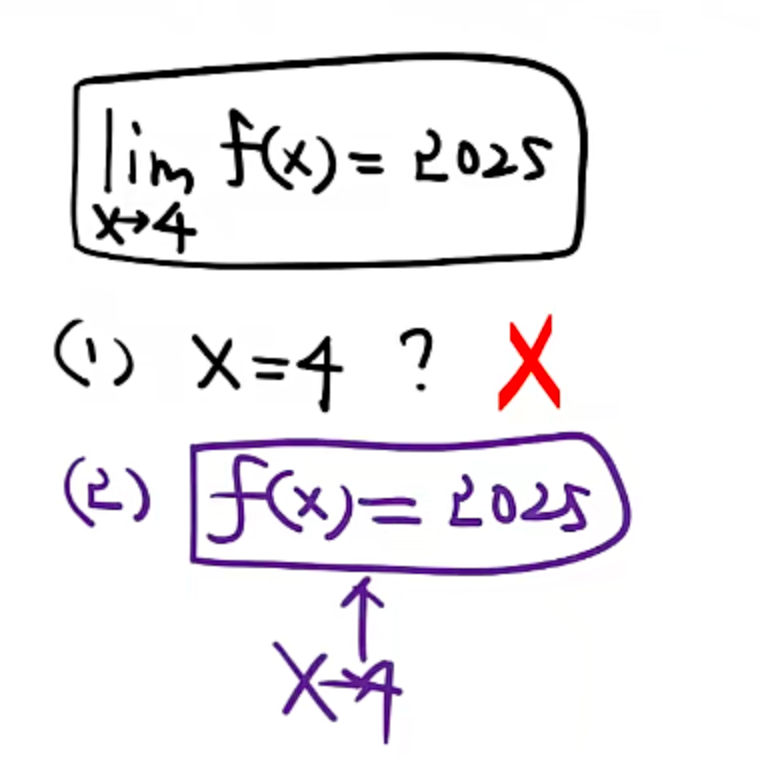 lim f(x) = 2025
x→4
(1) x=4 ? X
(2) f(x) = 2025
↑
x→4